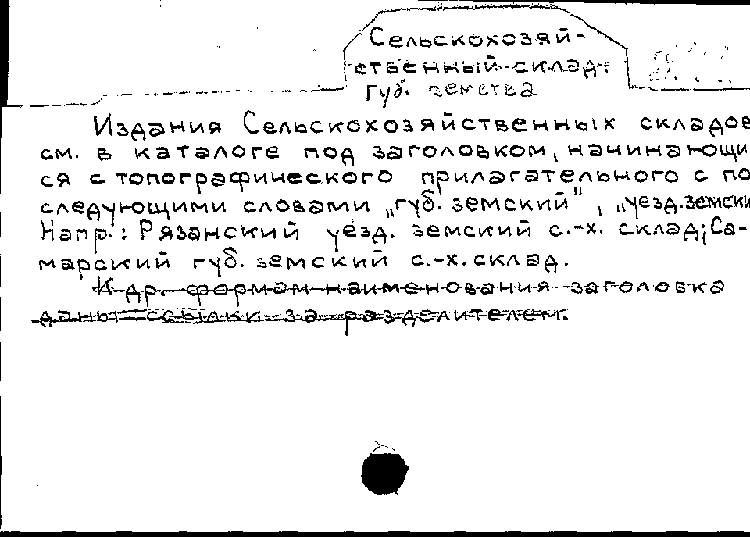 Сельскохозяй-
ственный склад.
Губ. земства
Издания Сельскохозяйственных складов
см. в каталоге под заголовком, начинающи
ся с топографического прилагательного с по
следующими словами „губ. земский", „уезд. земски
Напр.: Рязанский уезд. земский с.-х. склад; Са-
марский губ. земский с.-х. склад.
К др. формам наименования заголовка
даны ссылки за разделителем.